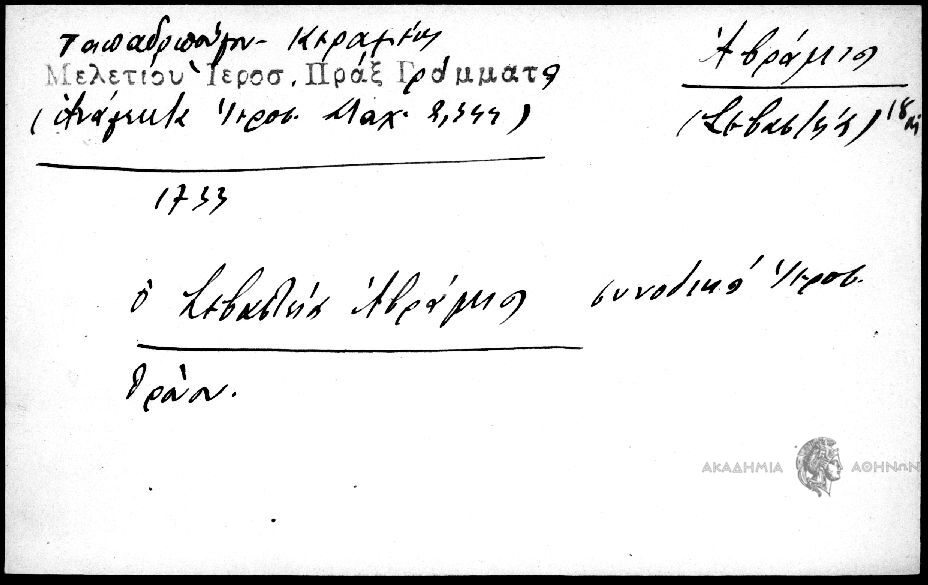 Παπαδοπούλου - Κεραμέως
Μελετίου Ἱεροσ. Πράξ Γράμματα
(Ἀνάλεκτα Ἱεροσ. Σταχ. 2,344)
Ἀβράμιος
(Σεβαστείας) 18
1733
ὁ Σεβαστείας Ἀβράμιος συνοδικά Ἱεροσ.
Θρόνου.
ΑΚΑΔΗΜΙΑ ΑΘΗΝΩΝ